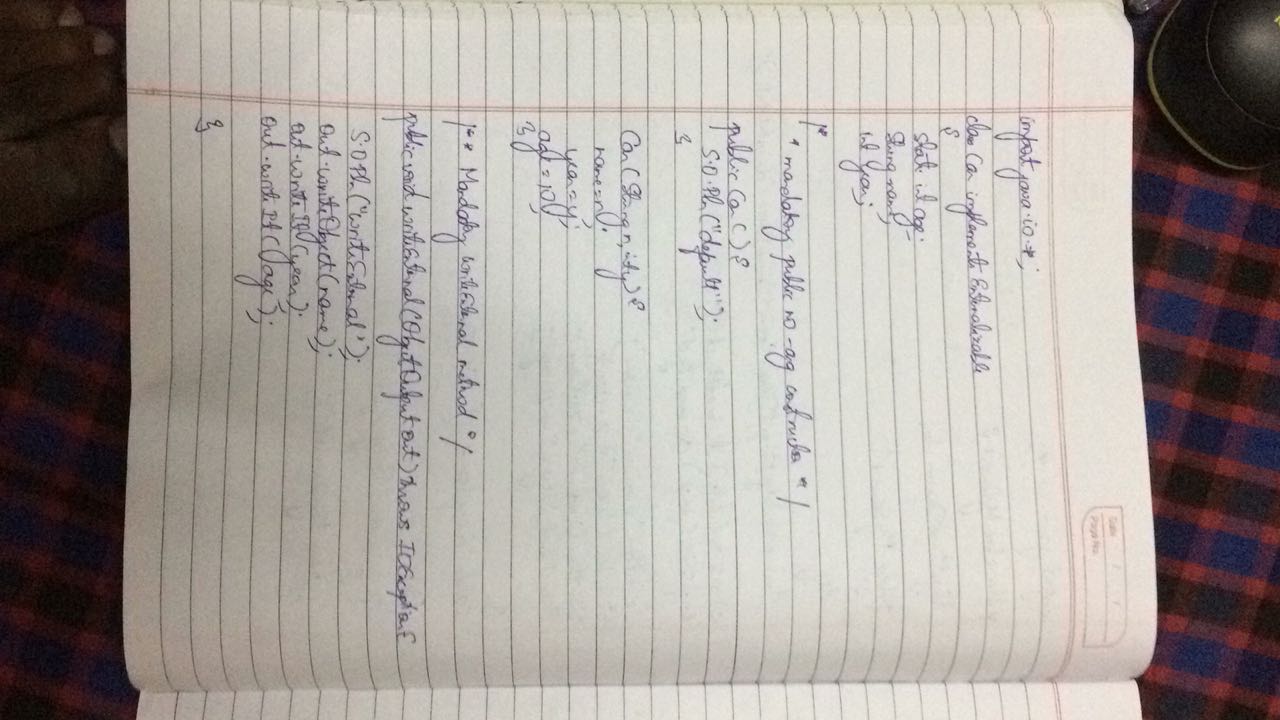 Date / /
Page No.
import java.io.*;
class Car implements Externalizable
{
static int age;
String name;
int year;
/*
* mandatory public no-arg constructor */
public Car() {
S.O.Pln("default");
}
Car(String n, int y) {
name=n;
year=y;
age=10;
}
/** Mandatory writeExternal method */
public void writeExternal(ObjectOutput out) throws IOException{
S.O.Pln("writeExternal");
out.writeObject(name);
out.writeInt(year);
out.writeInt(age);
}